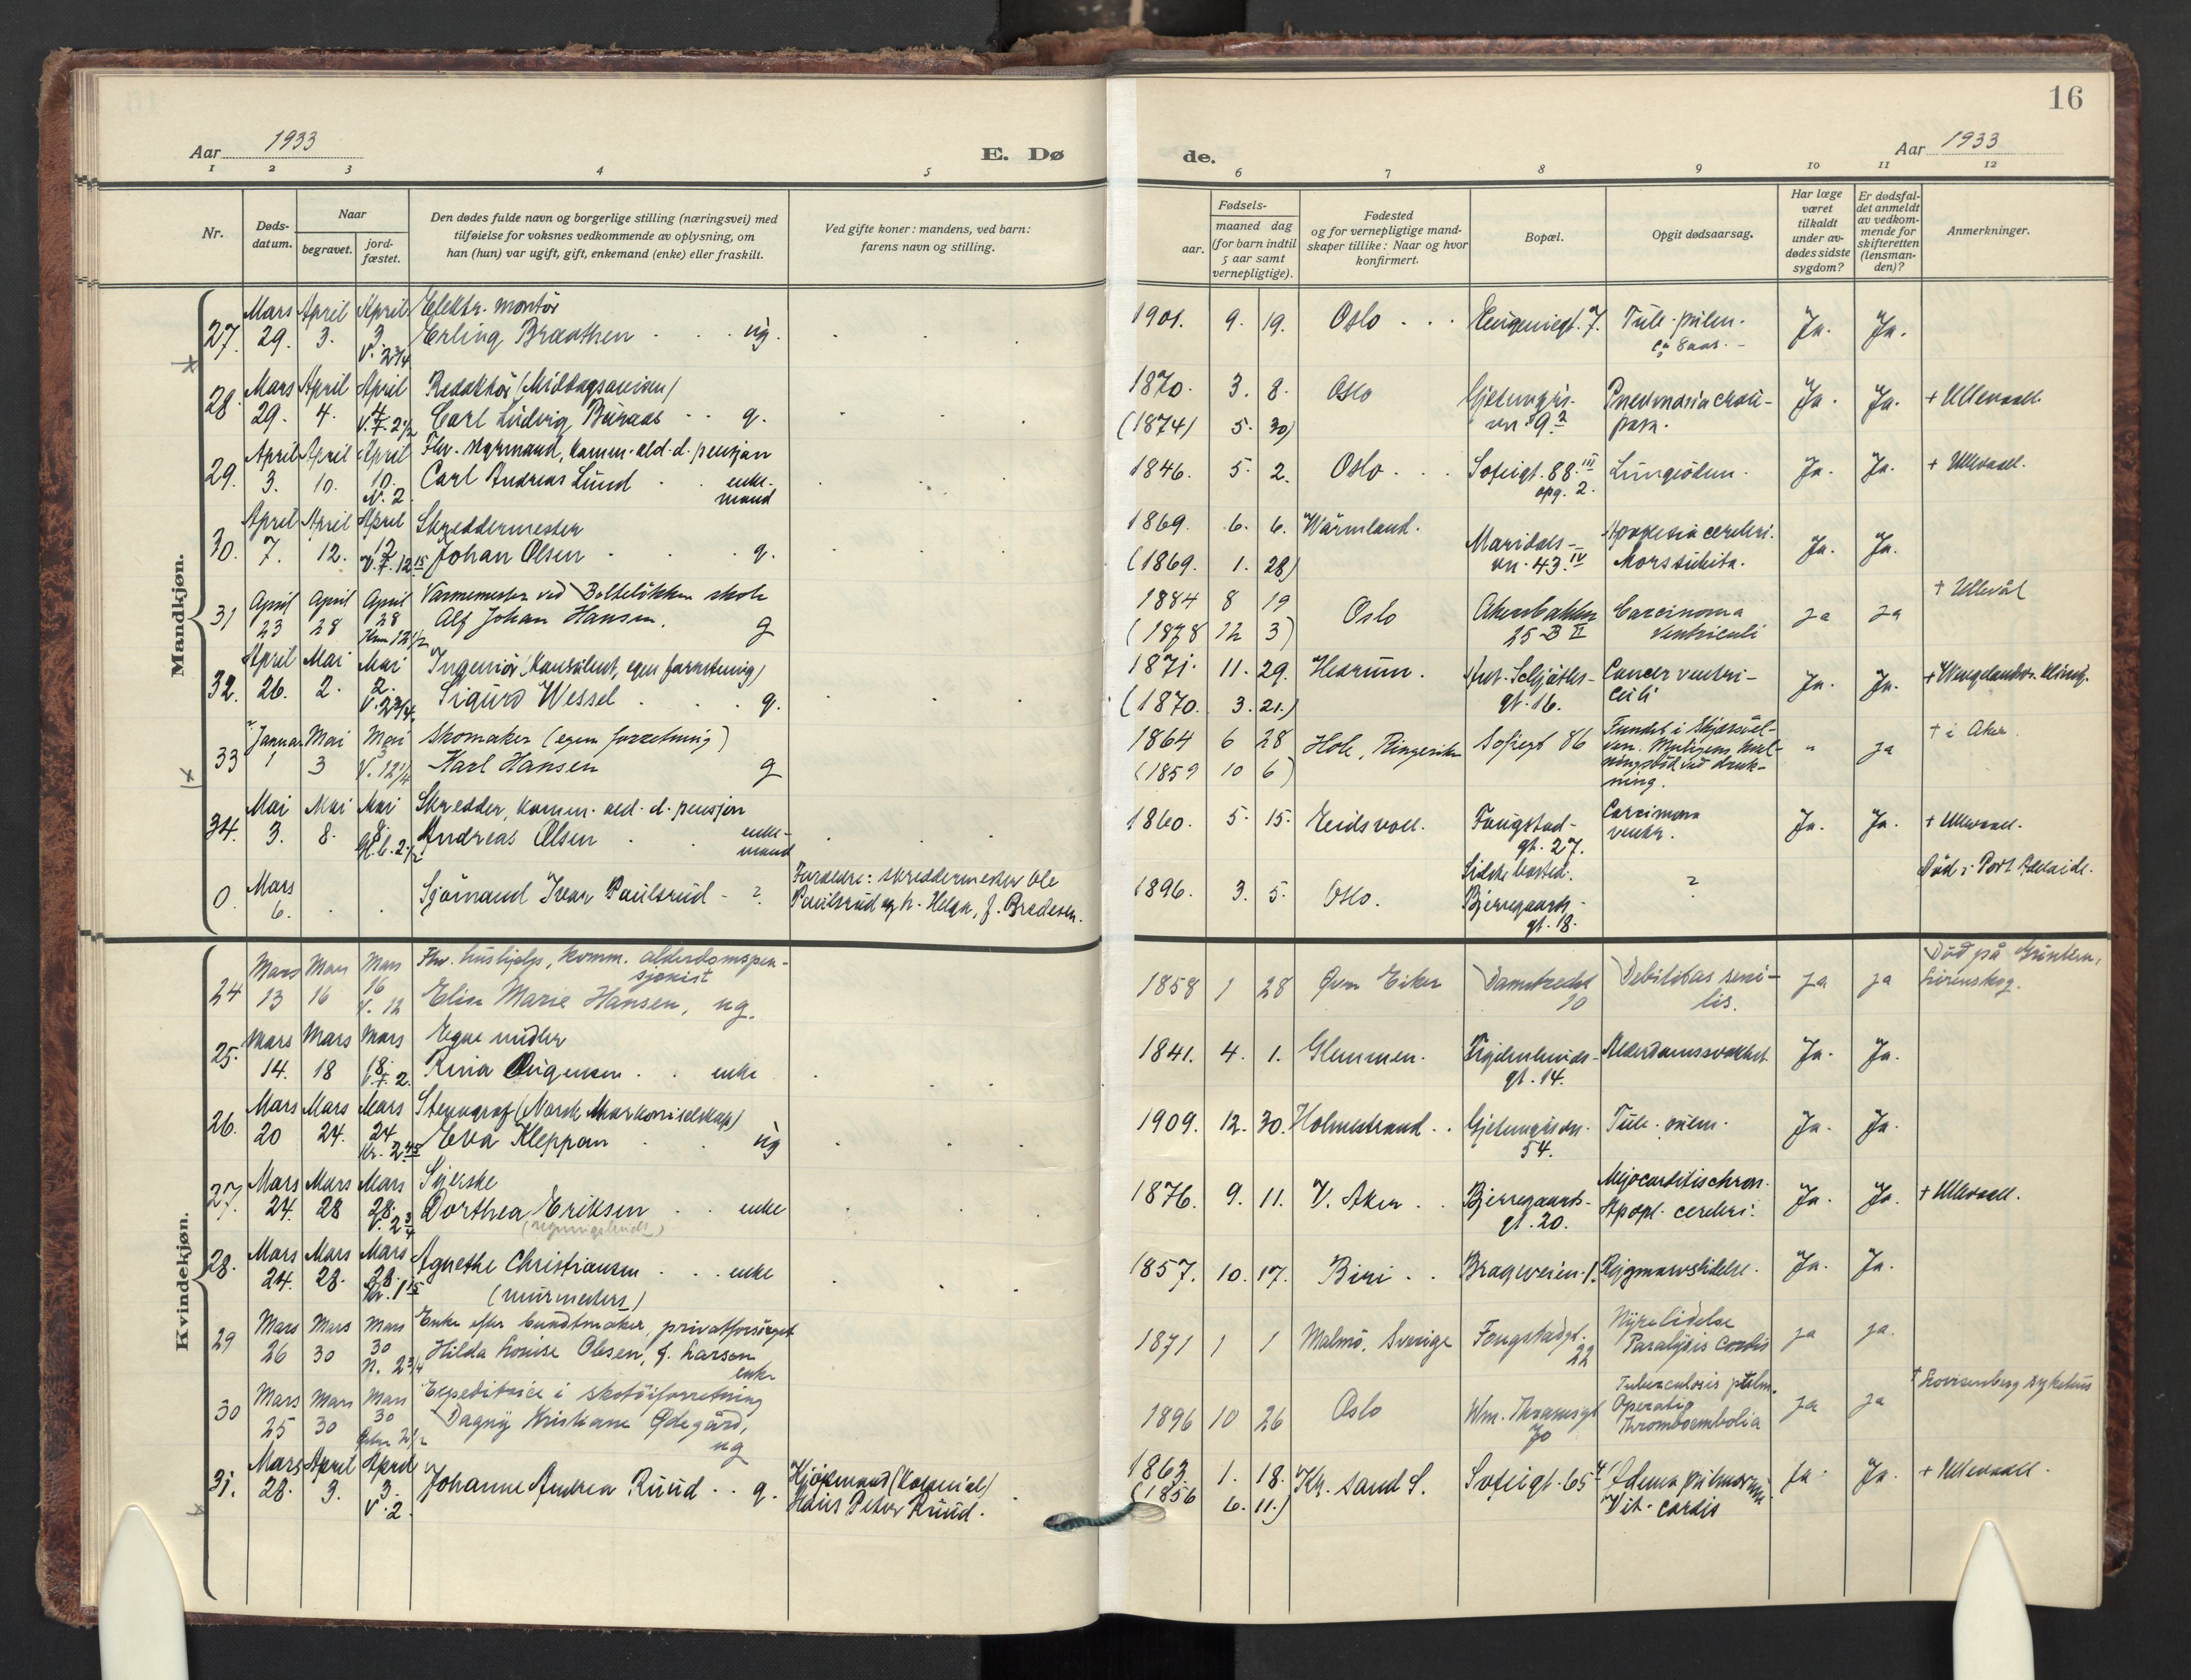 16
Aar 1933
E. Dø
de.
Aar 1933
1 2 3 4 5 6 7 8 9 10 11 12
Nr.
Døds-
datum.
Naar
begravet.
jord-
fæstet.
Den dødes fulde navn og borgerlige stilling (næringsvei) med
tilføielse for voksnes vedkommende av oplysning, om
han (hun) var ugift, gift, enkemand (enke) eller fraskilt.
Ved gifte koner: mandens, ved barn:
farens navn og stilling.
Fødsels-
aar.
maaned dag
(for barn indtil
5 aar samt
vernepligtige).
Fødested
og for vernepligtige mand-
skaper tillike: Naar og hvor
konfirmert.
Bopæl.
Opgit dødsaarsag.
Har læge
været
tilkaldt
under av-
dødes sidste
sygdom?
Er dødsfal-
det anmeldt
av vedkom-
mende for
skifteretten
(lensman-
den)?
Anmerkninger.
Mandkjøn.
Mars April April Elektr. montör
27. 29. 3. 3. Erling Braathen ug. 1901. 9. 19. Oslo Eugeniegt. 7. Tub. pulm. Ja. Ja.
V. 2 3/4 ca 8 aar.
Mars April April Redaktör (Middagsavisen) 1870. 3. 8. Oslo Gjetemyrs- Pneumonia crou- Ja. Ja. + Ullevaal.
28. 29. 4. 4. Carl Ludvig g. (1874) 5. 30) vn posa.
April April April Fhv. komm. ald. d. pensjon
29. 3. 10. 10. Carl Andreas Lund enke- 1846. 5. 2. Oslo Sofiegt. 88 III Lungeödem. Ja. Ja. + Ullevaal.
N. 2. mand opg. 2.
April April April Skreddermester 1869. 6. 6. Wärmland. Maridals- Apopexia cerebri. Ja. Ja.
30. 7. 12. 12 Johan Olsen g. (1869. 1. 28) vn. 43. IV Mors subita.
April April April Varmemester ved Bolteløkken skole 1884 8 19 Oslo Akersbakken Carcinoma ja ja + Ullevål
31 23 28 28 Alf Johan Hansen. g (1878 12 3) 25 B II Ventriculi
April Mai Mai Ingeniör (Konsulent, egen forretning) 1871. 11. 29. Hedrum. Ant. Schjøths- Cancer ventri- Ja. Ja.
32. 26. 2. 2. Sigurd Wessel g. (1870. 3. 21.) gt. 16. culi
V. 2 3/4
Januar Mai Mai Skomaker (egen forretning) 1864 6 28 Hole, Ringerike Sofiegt 86 Fundet i ja + i Aker
33 1 3 3 Karl Hansen g (1859 10 6)
V. 12 1/4 ning.
Mai Mai Mai Skredder, komm. ald. d. pensjon
34. 3. 8. 8. Andreas Olsen enke- 1860. 5. 15. Eidsvoll. Fougstad- Carcinoma Ja. Ja. + Ullevaal.
mand gt. 27. ventr.
Mars Foreldre: skreddermester Ole Sidste bosted. Död i Port Adelaide.
0. 6. Sjömand Ivar Paulsrud - ?. Paulsrud og h. Helga, f. Bredesen. 1896. 3. 5. Oslo. Bjerregaards- ?
gt. 18.
Kvindekjøn.
Mars Mars Mars Fhv. hushjelp, komm. alderdomspen-
sjonist Död på
24 13 16 16 Elise Marie Hansen, ug. 1858 1 28 Øvre Eiker Damstredet Debilitas seni- ja ja Lörenskog.
V. 12 10 lis.
Mars Mars Mars Egne midler
25. 14. 18 18 Rina enke 1841. 4. 1. Glemmen. gt. 14. Alderdomssvakhet Ja. Ja.
Mars Mars Mars Stenograf (Norsk Marconiselskap)
26. 20 24. 24 Eva Kleppan ug 1909. 12. 30. Holmestrand Gjetemyrsvn. Tub. pulm. Ja. Ja.
54.
Mars Mars Mars Syerske Myocarditis chron.
27. 24. 28 28. Dorthea Eriksen enke 1876. 9. 11. V. Aker Bjerregaards- Apopl. cerebri. Ja. Ja. + Ullevaal.
V. 2 3/4 gt. 20.
Mars Mars Mars
28. 24. 28. 28. Agnethe Christiansen enke 1857. 10. 17. Biri Brageveien 1. Rygmarvslidelse. Ja. Ja.
(murmesters)
Mars Mars Mars Enke efter bundtmaker, privatforsörget Nyrelidelse
29 26 30 30 Hilda Louise Olsen, f. Larsen 1871 1 1 Malmö, Sverige Fougstadgt. Paralysis cordis ja ja.
N. 2 3/4 enke 22
Mars Mars Mars Expeditrice i skotöiforretning Tuberculosis pulm. + Lovisenberg sykehus
30 25 30 30 Dagny Kristiane Ødegård, 1896 10 26 Oslo Wm. Thranesgt Operatio ja ja
ug 70 Thromboembolia
Mars April April Kjöpmand (Kolonial) 1863. 1. 18. Kr. sand S. Sofiegt. 65 Ødema pulmonum Ja. Ja. + Ullevaal.
31. 28. 3. 3. Johanne Andrea Ruud g. Hans Peter Ruud. (1856 6. 11.) Vit. cordis
V. 2.